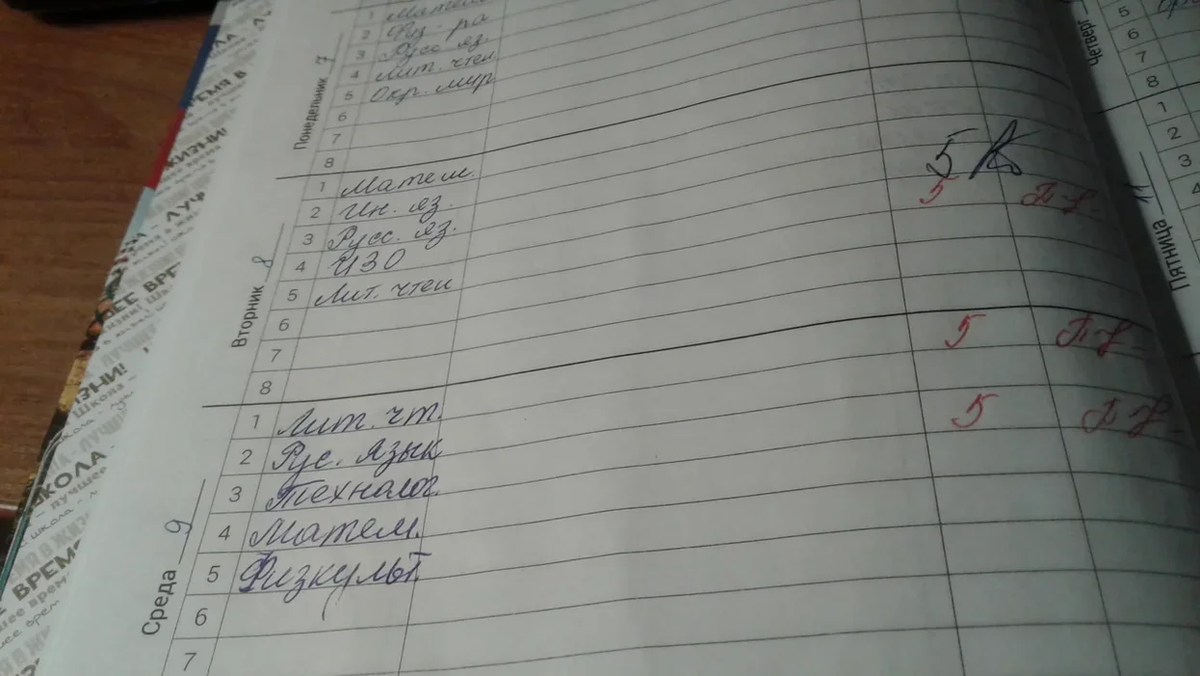 Понедельник 7
1 Матем
2 Физ-ра
3 Русс яз.
4 Лит. чтен
5 Окр. мир
6
7
8
Вторник 8
1 Матем.
2 Ин. яз. 5
3 Русс. яз. 5
4 ИЗО
5 Лит. чтен
6
7
8
Среда 9
1 Лит. чт. 5
2 Рус. язык
3 Технолог. 5
4 Матем.
5 Физкульт.
6
7
Четверг
5
6
7
8
Пятница 11
1
2
3
4
ЖИЗНИ!
ШКОЛА
ЛУЧШЕЕ ВРЕМЯ